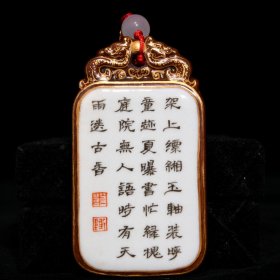 架上縹緗玉軸裝呼
童趂夏曝書忙緑槐
庭院無人語時有天
雨透古香